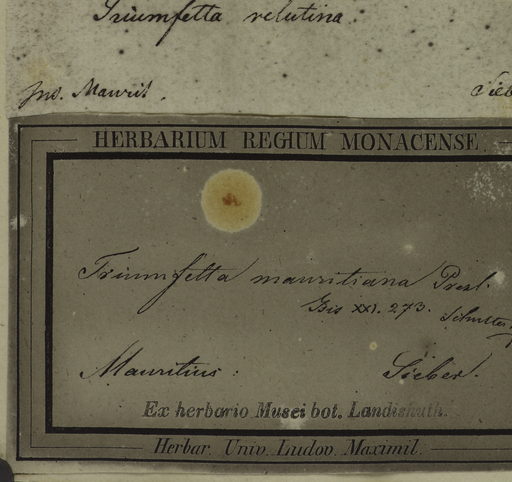 Triumfetta velutina
Ins. Maurit. Sieb
HERBARIUM REGIUM MONACENSE.
Triumfetta mauritiana Presl.
Isis XXI. 273.
Mauritius: Sieber.
Ex herbario Musei bot. Landishuth.
Herbar. Univ. Ludov. Maximil.